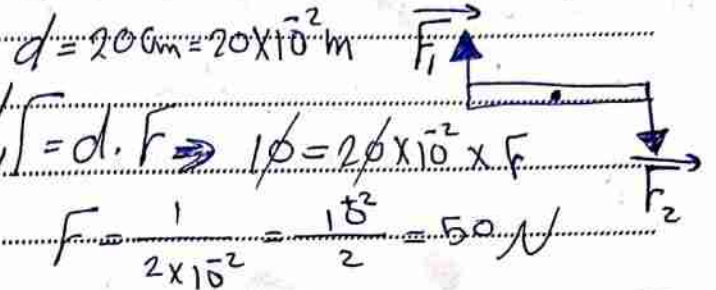 d = 20 cm = 20×10⁻² m F₁
Γ = d . F ⇒ 10 = 20×10⁻² × F
F₂
F = 1/(2×10⁻²) = 10²/2 = 50 N